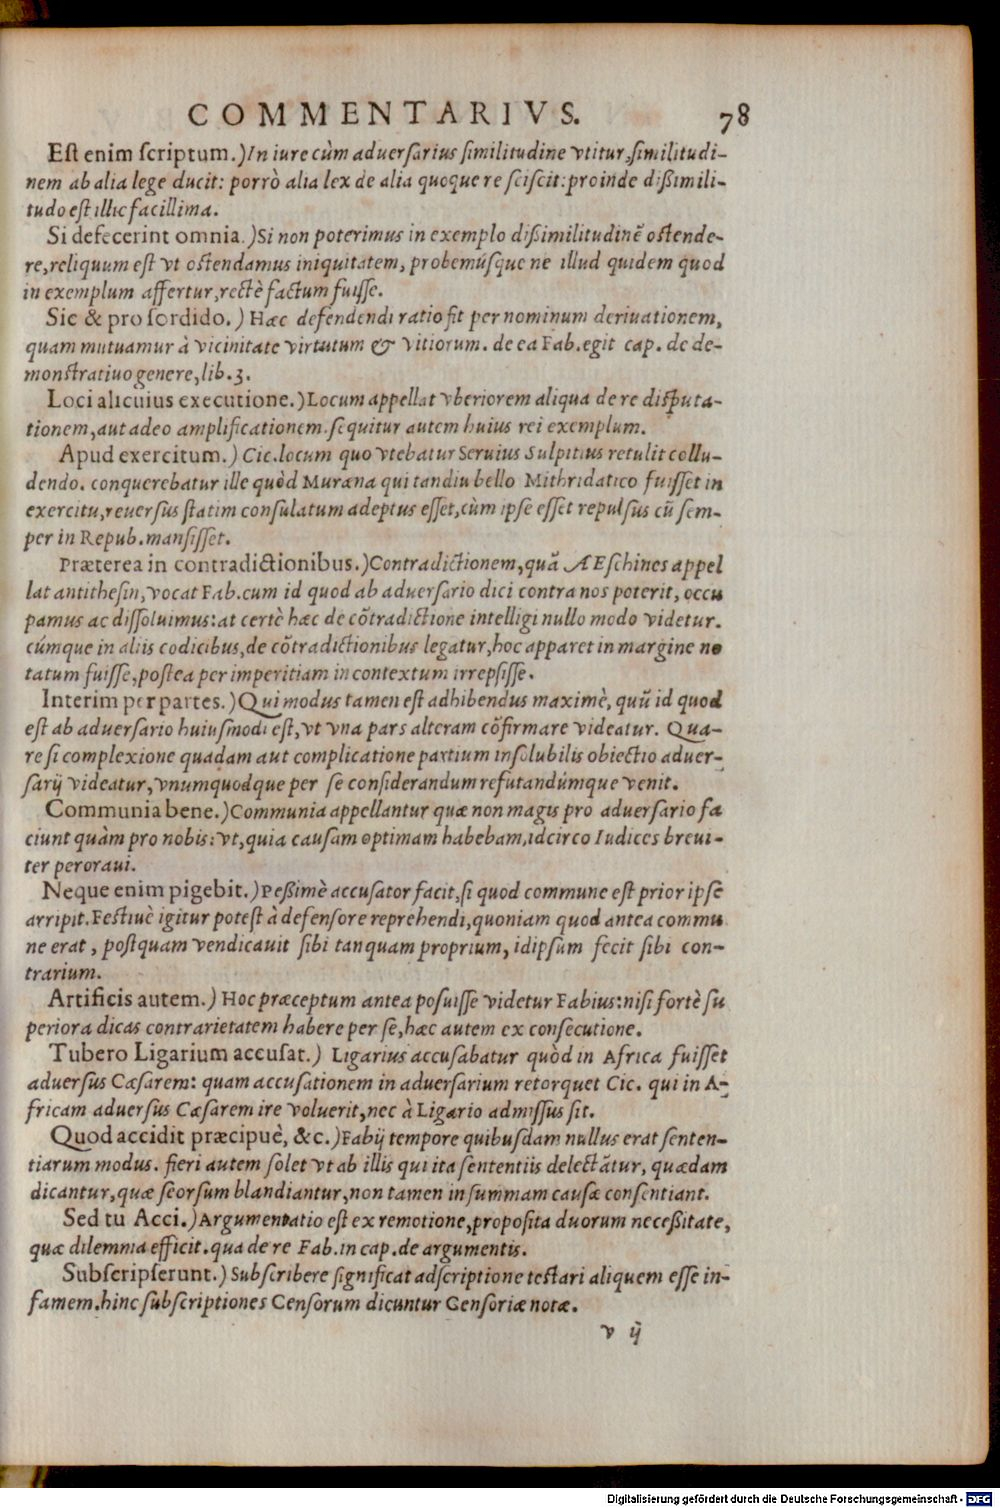 COMMENTARIVS. 78
Est enim scriptum.) In iure cùm aduersarius similitudine vtitur, similitudi-
nem ab alia lege ducit: porrò alia lex de alia quoque re sciscit: proinde dißimili-
tudo est illic facillima.
Si defecerint omnia.) Si non poterimus in exemplo dißimilitudinẽ ostende-
re, reliquum est vt ostendamus iniquitatem, probemúsque ne illud quidem quod
in exemplum affertur, rectè factum fuisse.
Sic & pro sordido.) Hæc defendendi ratio fit per nominum deriuationem,
quam mutuamur à vicinitate virtutum & vitiorum. de ea Fab. egit cap. de de-
monstratiuo genere, lib. 3.
Loci alicuius executione.) Locum appellat vberiorem aliqua de re disputa-
tionem, aut adeo amplificationem. sequitur autem huius rei exemplum.
Apud exercitum.) Cic. locum quo vtebatur Seruius Sulpitius retulit collu-
dendo. conquerebatur ille quòd Muræna qui tandiu bello Mithridatico fuisset in
exercitu, reuersus statim consulatum adeptus esset, cùm ipse esset repulsus cũ sem-
per in Repub. mansisset.
Præterea in contradictionibus.) Contradictionem, quã AEschines appel
lat antithesin, vocat Fab. cum id quod ab aduersario dici contra nos poterit, occu
pamus ac dissoluimus: at certè hæc de cõtradictione intelligi nullo modo videtur.
cúmque in aliis codicibus, de cõtradictionibus legatur, hoc apparet in margine no
tatum fuisse, postea per imperitiam in contextum irrepsisse.
Interim per partes.) Qui modus tamen est adhibendus maximè, quũ id quod
est ab aduersario huiusmodi est, vt vna pars alteram cõfirmare videatur. Qua-
re si complexione quadam aut complicatione partium insolubilis obiectio aduer-
sarij videatur, vnumquodque per se considerandum refutandúmque venit.
Communia bene.) Communia appellantur quæ non magis pro aduersario fa
ciunt quàm pro nobis: vt, quia causam optimam habebam, idcirco Iudices breui-
ter peroraui.
Neque enim pigebit.) Peßimè accusator facit, si quod commune est prior ipse
arripit. Festiuè igitur potest à defensore reprehendi, quoniam quod antea commu
ne erat, postquam vendicauit sibi tanquam proprium, id ipsum fecit sibi con-
trarium.
Artificis autem.) Hoc præceptum antea posuisse videtur Fabius: nisi fortè su
periora dicas contrarietatem habere per se, hæc autem ex consecutione.
Tubero Ligarium accusat.) Ligarius accusabatur quòd in Africa fuisset
aduersus Cæsarem: quam accusationem in aduersarium retorquet Cic. qui in A-
fricam aduersus Cæsarem ire voluerit, nec à Ligario admissus sit.
Quod accidit præcipuè, &c.) Fabij tempore quibusdam nullus erat senten-
tiarum modus. fieri autem solet vt ab illis qui ita sententiis delectãtur, quædam
dicantur, quæ seorsum blandiantur, non tamen in summam causæ consentiant.
Sed tu Acci.) Argumentatio est ex remotione, proposita duorum necessitate,
quæ dilemma efficit. qua de re Fab. in cap. de argumentis.
Subscripserunt.) Subscribere significat adscriptione testari aliquem esse in-
famem. hinc subscriptiones Censorum dicuntur Censoriæ notæ.
v ij
Digitalisierung gefördert durch die Deutsche Forschungsgemeinschaft - DFG